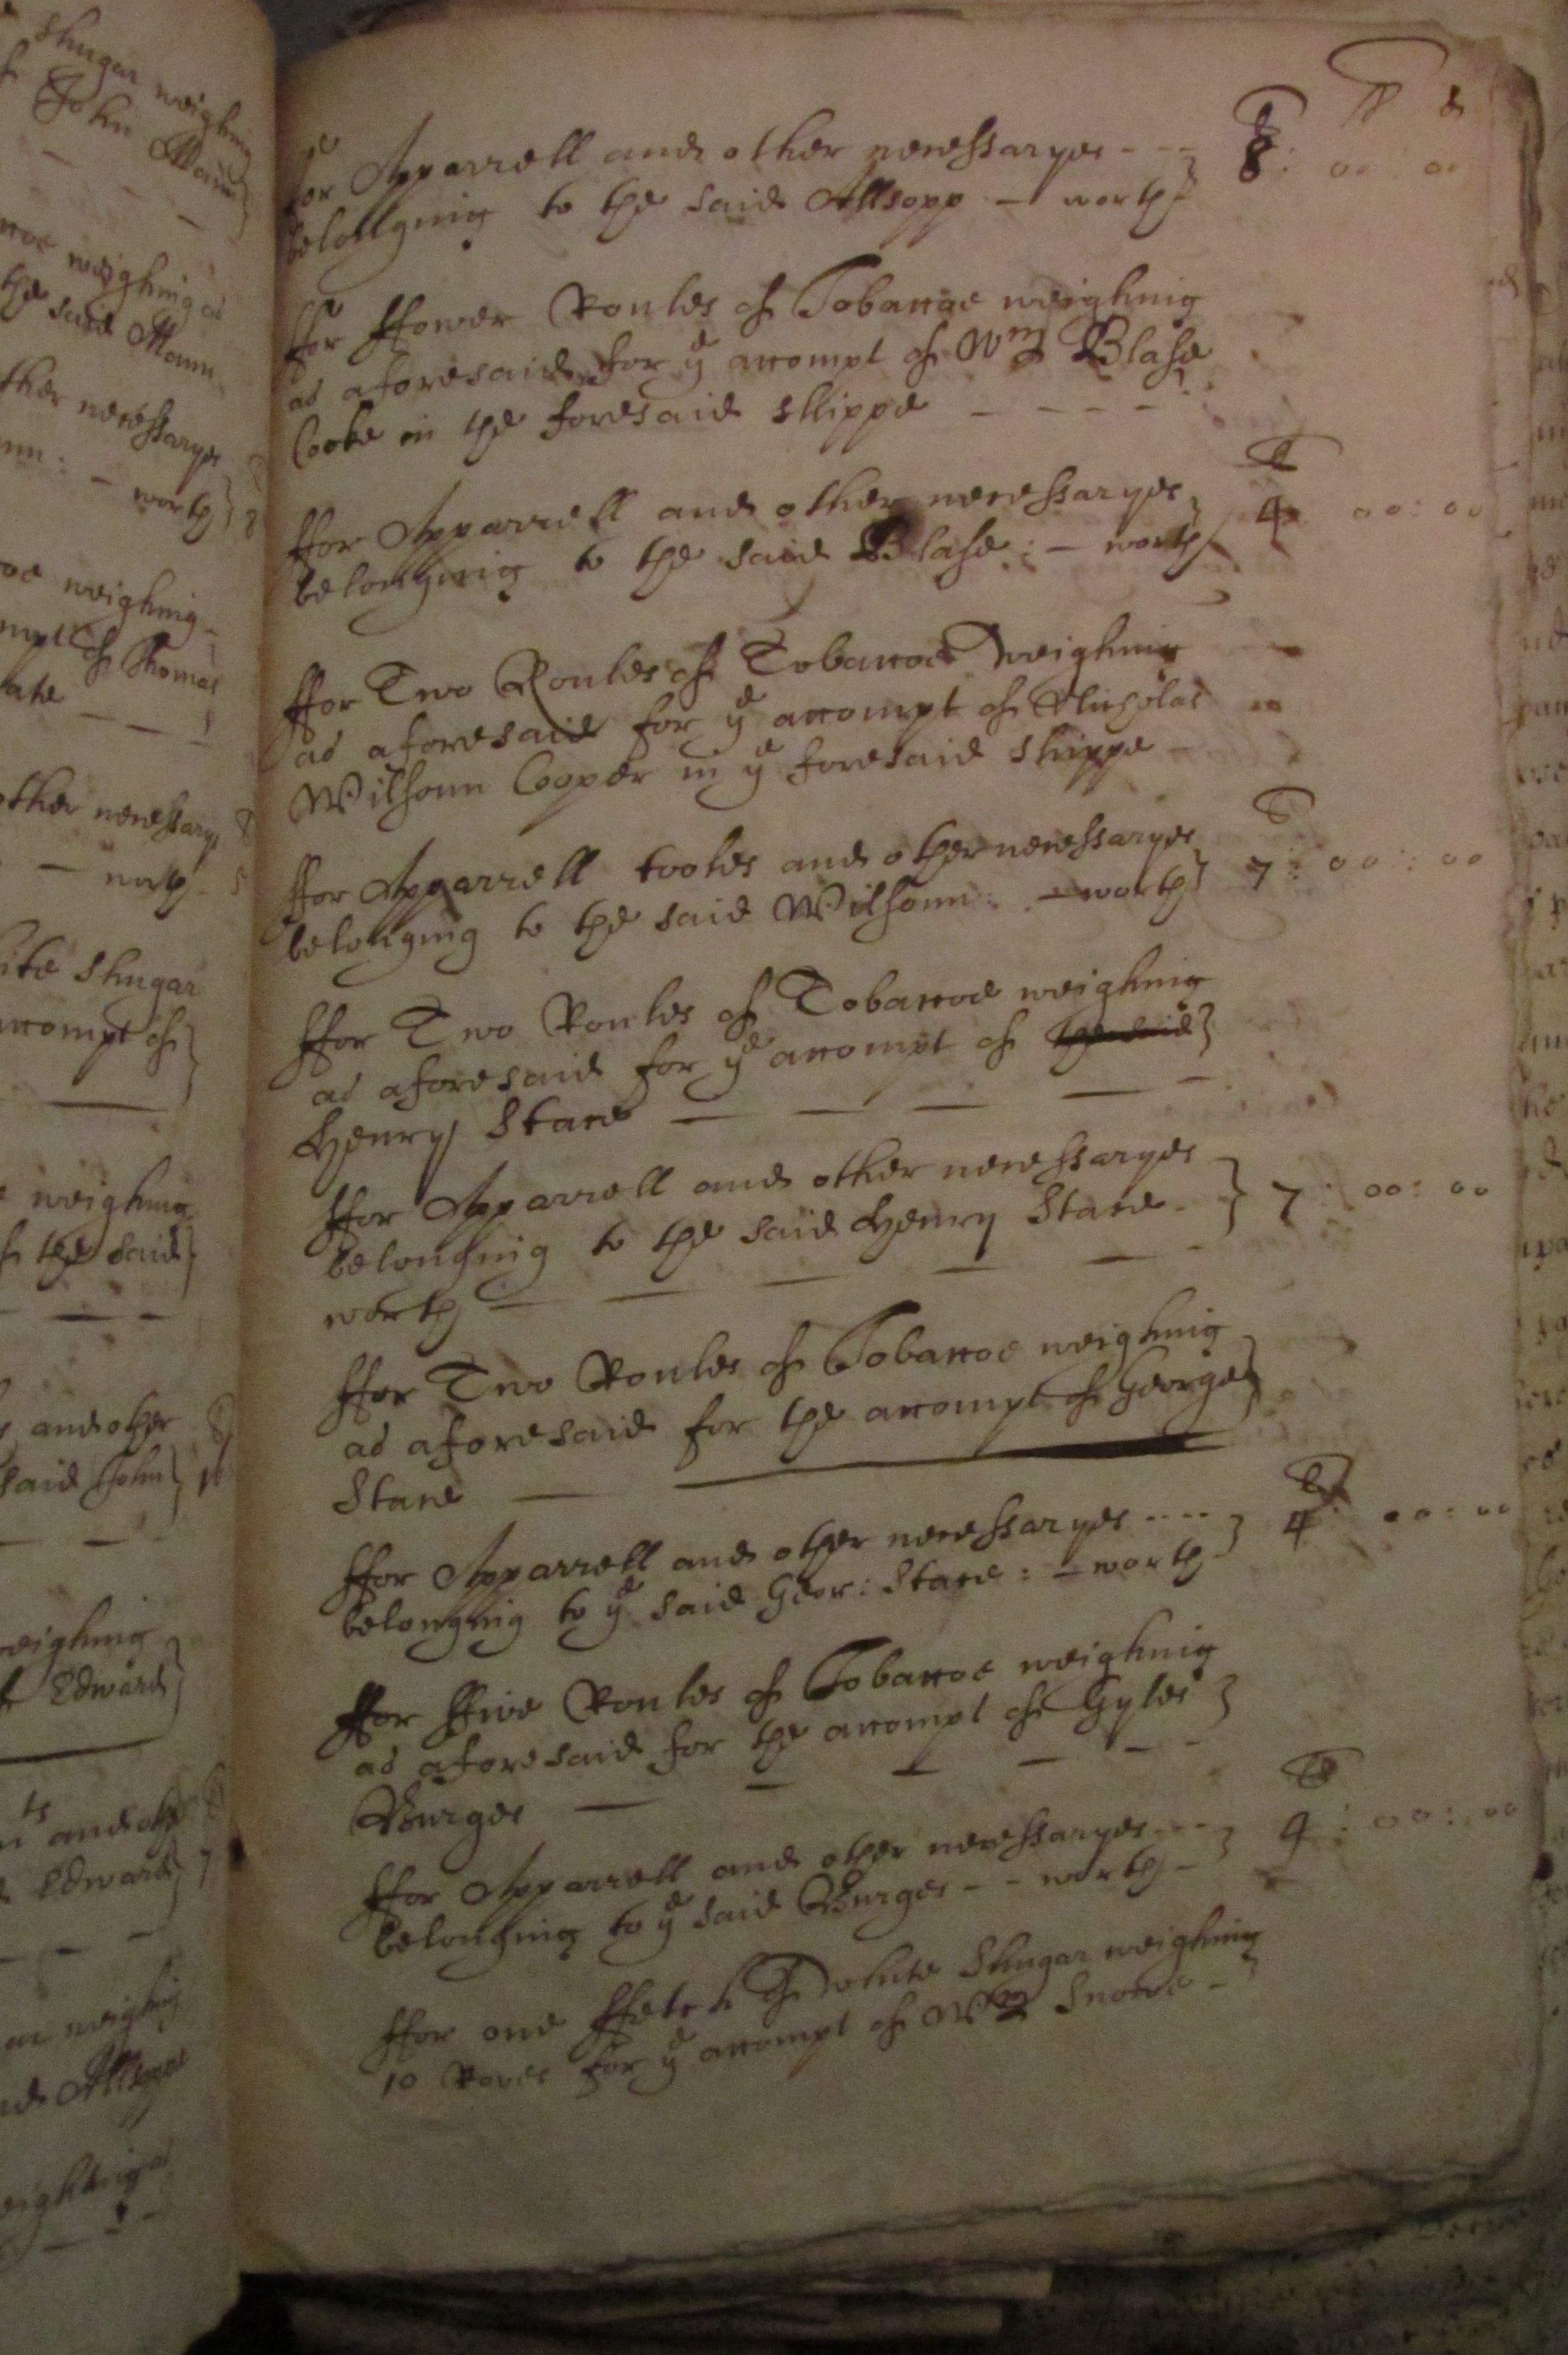 Shugar weighing
of John Mann
weighing as
the said Mann
other necessaryes
worth
weighing
of Thomas
other necessarys
worth
white Shugar
accompt of
weighing
of the said
and other
said John
weighing
of Edward
and other
Edward
weighing
Allsopp
weighing
li s d
ffor Apparrell and other necessaryes - - - 8 : 00 : 00
belonging to the said Allsopp - worth
ffor ffower Roules of Tobaccoe weighing
as aforesaid for ye accompt of Wm Blase
Cooke in the foresaid shippe - - - -
ffor Apparrell and other necessaryes li 4 : 00 : 00
belonging to the said Blase : - worth
ffor Two Roules of Tobaccoe weighing
as aforesaid for ye accompt of Nicholas
Wilsonn Cooper in ye foresaid shippe -
ffor Apparrell tooles and other necessaryes li 7 : 00 : 00
belonging to the said Wilsonn : - worth
ffor Two Roules of Tobaccoe weighing
as aforesaid for ye accompt of the said
Henry Stace - - - - -
ffor Apparrell and other necessaryes
belonging to the said Henry Stace - 7 : 00 : 00
worth - - - - -
ffor Two Roules of Tobaccoe weighing
as aforesaid for the accompt of George
Stace -
ffor Apparrell and other necessaryes - - - - li 4 : 00 : 00
belonging to ye said Geor: Stace : - worth
ffor ffive Roules of Tobaccoe weighing
as aforesaid for the accompt of Gyles
Burges - - - - -
ffor Apparrell and other necessaryes - - - li 4 : 00 : 00
belonging to ye said Burges - - worth -
ffor one ffetch of white Shugar weighing
10 Roves for ye accompt of Wm Snowe -